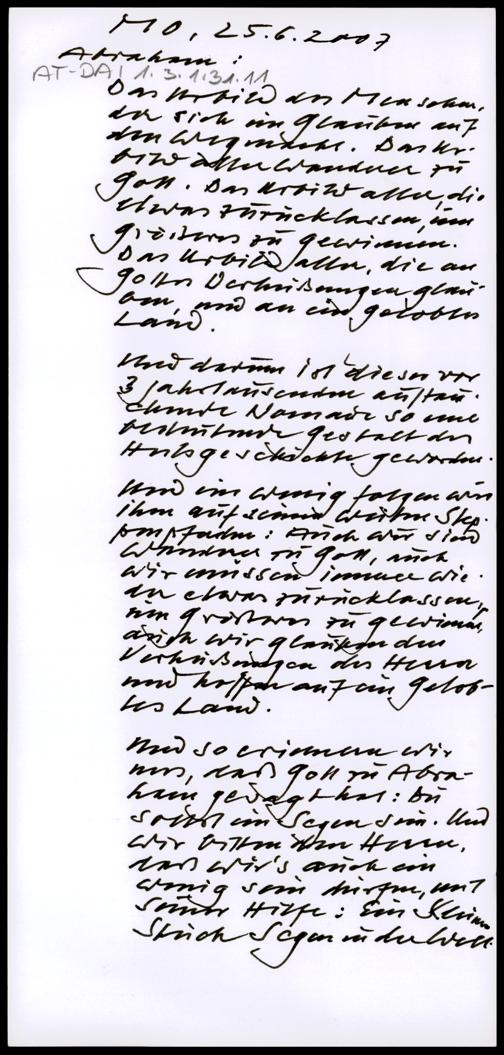 MO, 25.6.2007
Abraham:
AT-DAI 1.3.1.31.11
Das Urbild des Menschen,
der sich im Glauben auf
den Weg macht. Das Ur-
bild aller Wanderer zu
Gott. Das Urbild aller, die
etwas zurücklassen, um
Größeres zu gewinnen.
Das Urbild aller, die an
Gottes Verheißungen glau-
ben, und an ein gelobtes
Land.
Und darum ist dieser vor
3 Jahrtausenden auftau-
chende Nomade so eine
bedeutende Gestalt der
Heilsgeschichte geworden.
Und ein wenig folgen wir
ihm auf seinen weiten Step-
penpfaden: Auch wir sind
Wanderer zu Gott, auch
wir müssen immer wie-
der etwas zurücklassen,
um Größeres zu gewinnen,
auch wir glauben den
Verheißungen des Herrn
und hoffen auf ein Gelob-
tes Land.
Und so erinnern wir
uns, daß Gott zu Abra-
ham gesagt hat: Du
sollst ein Segen sein. Und
wir bitten den Herrn,
daß wir's auch ein
wenig sein dürfen, mit
Seiner Hilfe: Ein klein
Stück Segen in der Welt.